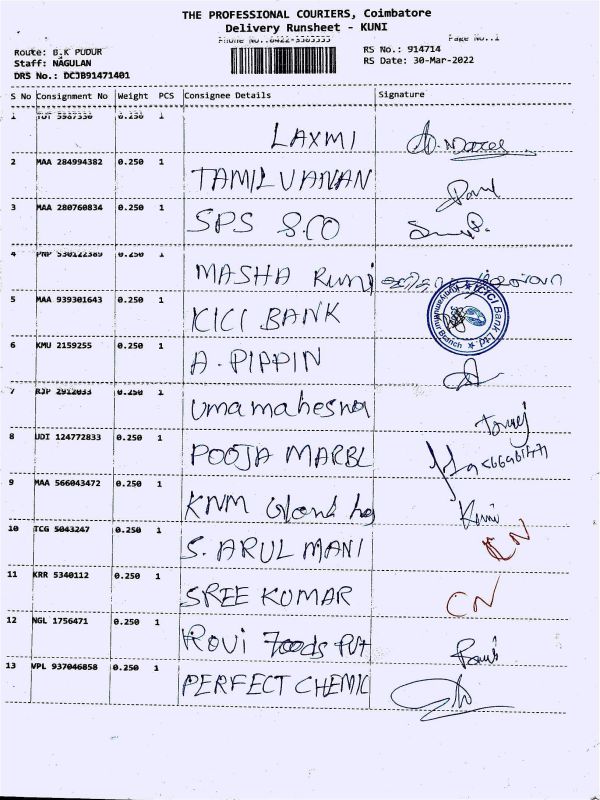 THE PROFESSIONAL COURIERS, Coimbatore
Delivery Runsheet - KUNI
Phone No.:0422-5585555 Page No.:1
Route: B.K PUDUR RS No.: 914714
Staff: NAGULAN RS Date: 30-Mar-2022
DRS No.: DCJB91471401
S No Consignment No Weight PCS Consignee Details Signature
1 0.250 1 LAXMI
2 MAA 284994382 0.250 1 TAMILVANAN
3 MAA 280760834 0.250 1 SPS & CO
4 PNP 530122389 0.250 1 MASHA
5 MAA 939301643 0.250 1 ICICI BANK
ICICI Bank Ltd
Branch
6 KMU 2159255 0.250 1 A. PIPPIN
7 RJP 2912033 0.250 1 umamaheswa
8 UDI 124772833 0.250 1 POOJA MARBL
9 MAA 566043472 0.250 1 KNM
10 TCG 5043247 0.250 1 S. ARUL MANI CN
11 KRR 5340112 0.250 1 SREE KUMAR CN
12 NGL 1756471 0.250 1 Rovi Foods Pvt
13 VPL 937046858 0.250 1 PERFECT CHEMIC